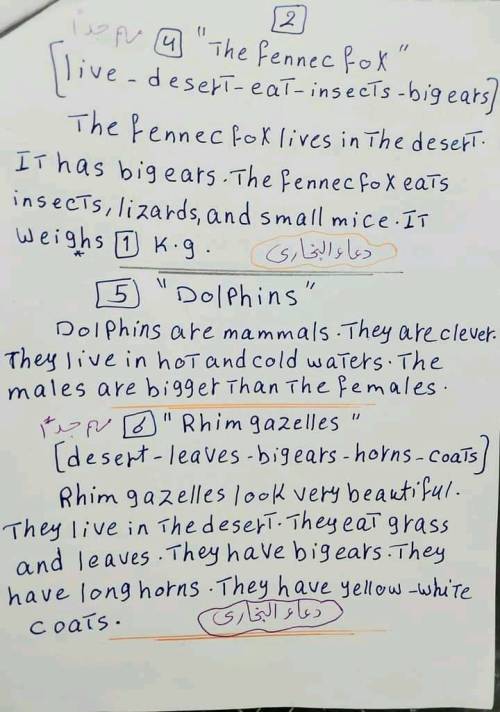 2
هام جدا 4 "The fennec fox"
[live - desert - eat - insects - big ears]
The fennec fox lives in the desert.
It has big ears. The fennec fox eats
insects, lizards, and small mice. It
weighs 1 K.g. دعاء البخارى
5 "Dolphins"
Dolphins are mammals. They are clever.
They live in hot and cold waters. The
males are bigger than the females.
هام جدا 6 "Rhim gazelles"
[desert - leaves - big ears - horns - coats]
Rhim gazelles look very beautiful.
They live in the desert. They eat grass
and leaves. They have big ears. They
have long horns. They have yellow-white
coats. دعاء البخارى